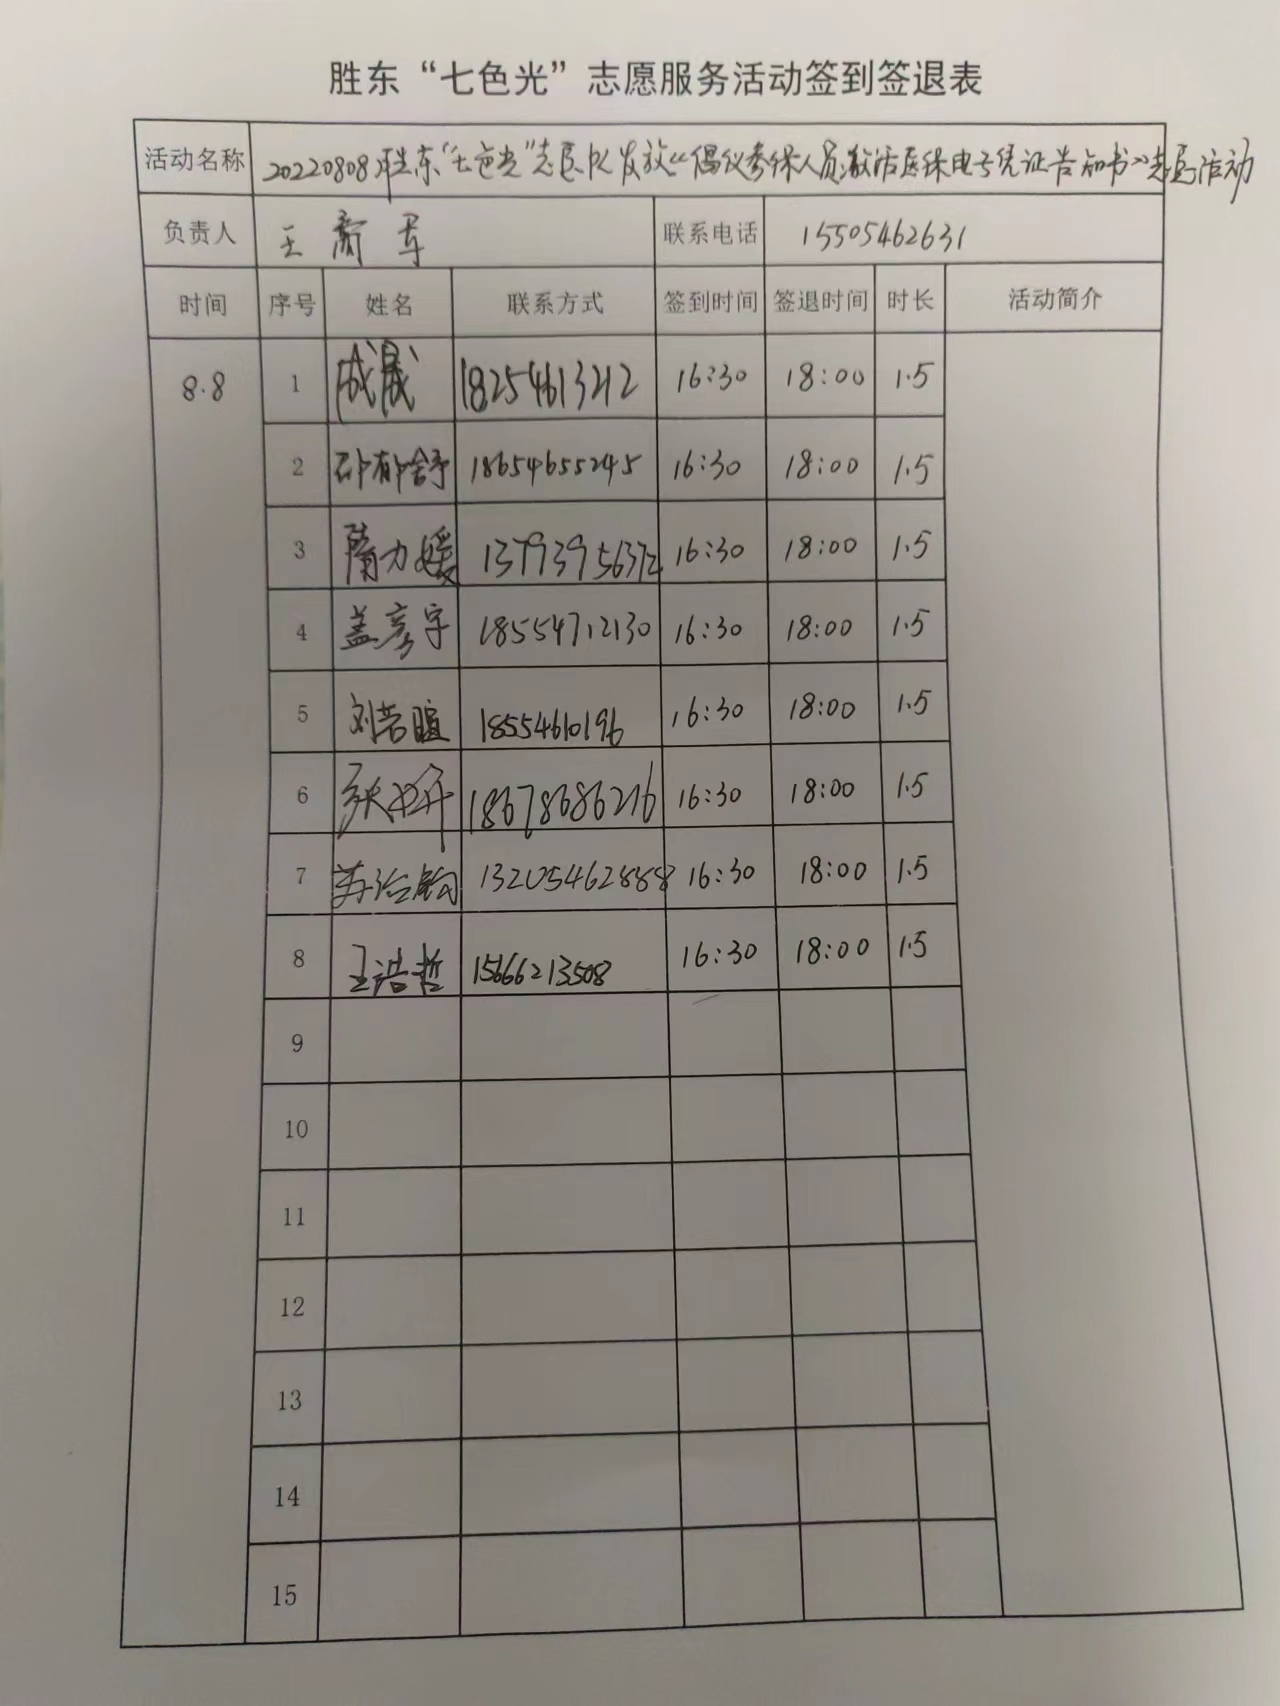 胜东“七色光”志愿服务活动签到签退表
活动名称 20220808胜东“七色光”志愿队发放《倡议参保人员激活医保电子凭证告知书》志愿活动
负责人 王 军 联系电话 15505462631
时间 序号 姓名 联系方式 签到时间 签退时间 时长 活动简介
8.8 1 成晟 18254613212 16:30 18:00 1.5
2 舒 18654655245 16:30 18:00 1.5
3 隋力媛 13793956372 16:30 18:00 1.5
4 盖彦宇 18554712130 16:30 18:00 1.5
5 刘若暄 18554610196 16:30 18:00 1.5
6 18678686216 16:30 18:00 1.5
7 苏治 13205462888 16:30 18:00 1.5
8 王浩哲 15666213508 16:30 18:00 1.5
9
10
11
12
13
14
15